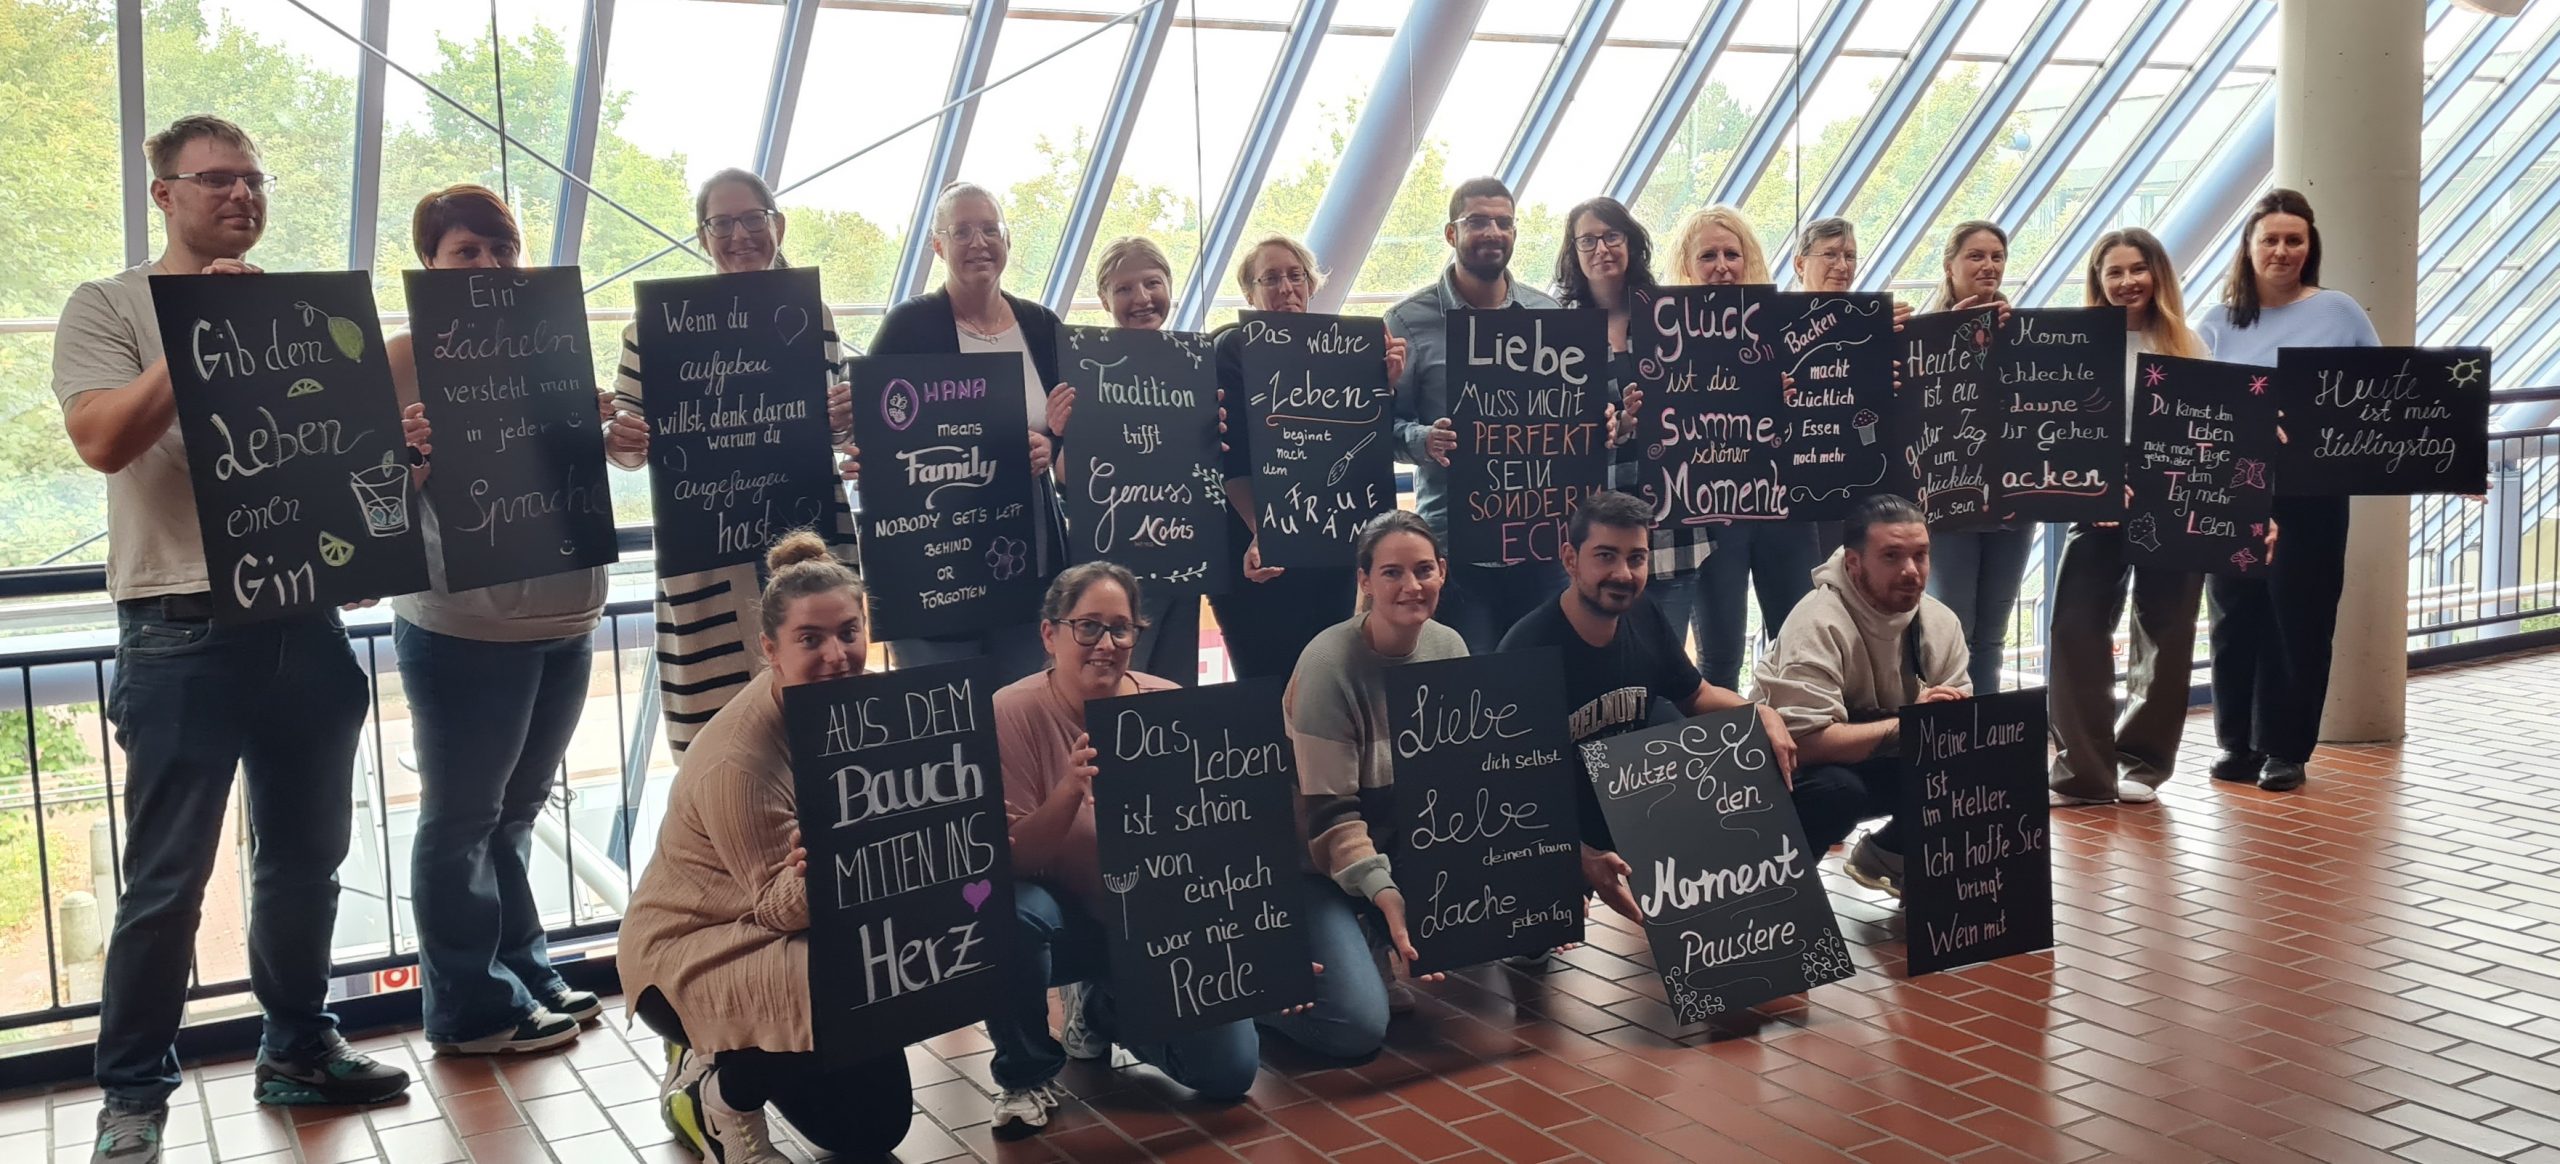 Gib dem
Leben
einen
Gin
Ein
Lächeln
versteht man
in jeder
Sprache
Wenn du
aufgeben
willst, denk daran
warum du
angefangen
hast
OHANA
means
Family
NOBODY GETS LEFT
BEHIND
OR
FORGOTTEN
Tradition
trifft
Genuss
Nobis
Das wahre
Leben
beginnt
nach
dem
AUFRÄUMEN
Liebe
MUSS NICHT
PERFEKT
SEIN
SONDERN
ECHT
Glück
ist die
Summe
schöner
Momente
Backen
macht
Glücklich
Essen
noch mehr
Heute
ist ein
guter Tag
um
glücklich
zu sein!
Komm
chlechte
Laune
Wir Gehen
acken
Du kannst dem
Leben
nicht mehr Tage
geben, aber
dem
Tag mehr
Leben
Heute
ist mein
Lieblingstag
AUS DEM
Bauch
MITTEN INS
Herz
Das Leben
ist schön
von
einfach
war nie die
Rede.
Liebe
dich selbst
Lebe
deinen Traum
Lache
jeden Tag
BELMONT
Nutze
den
Moment
Pausiere
Meine Laune
ist
im Keller.
Ich hoffe Sie
bringt
Wein mit